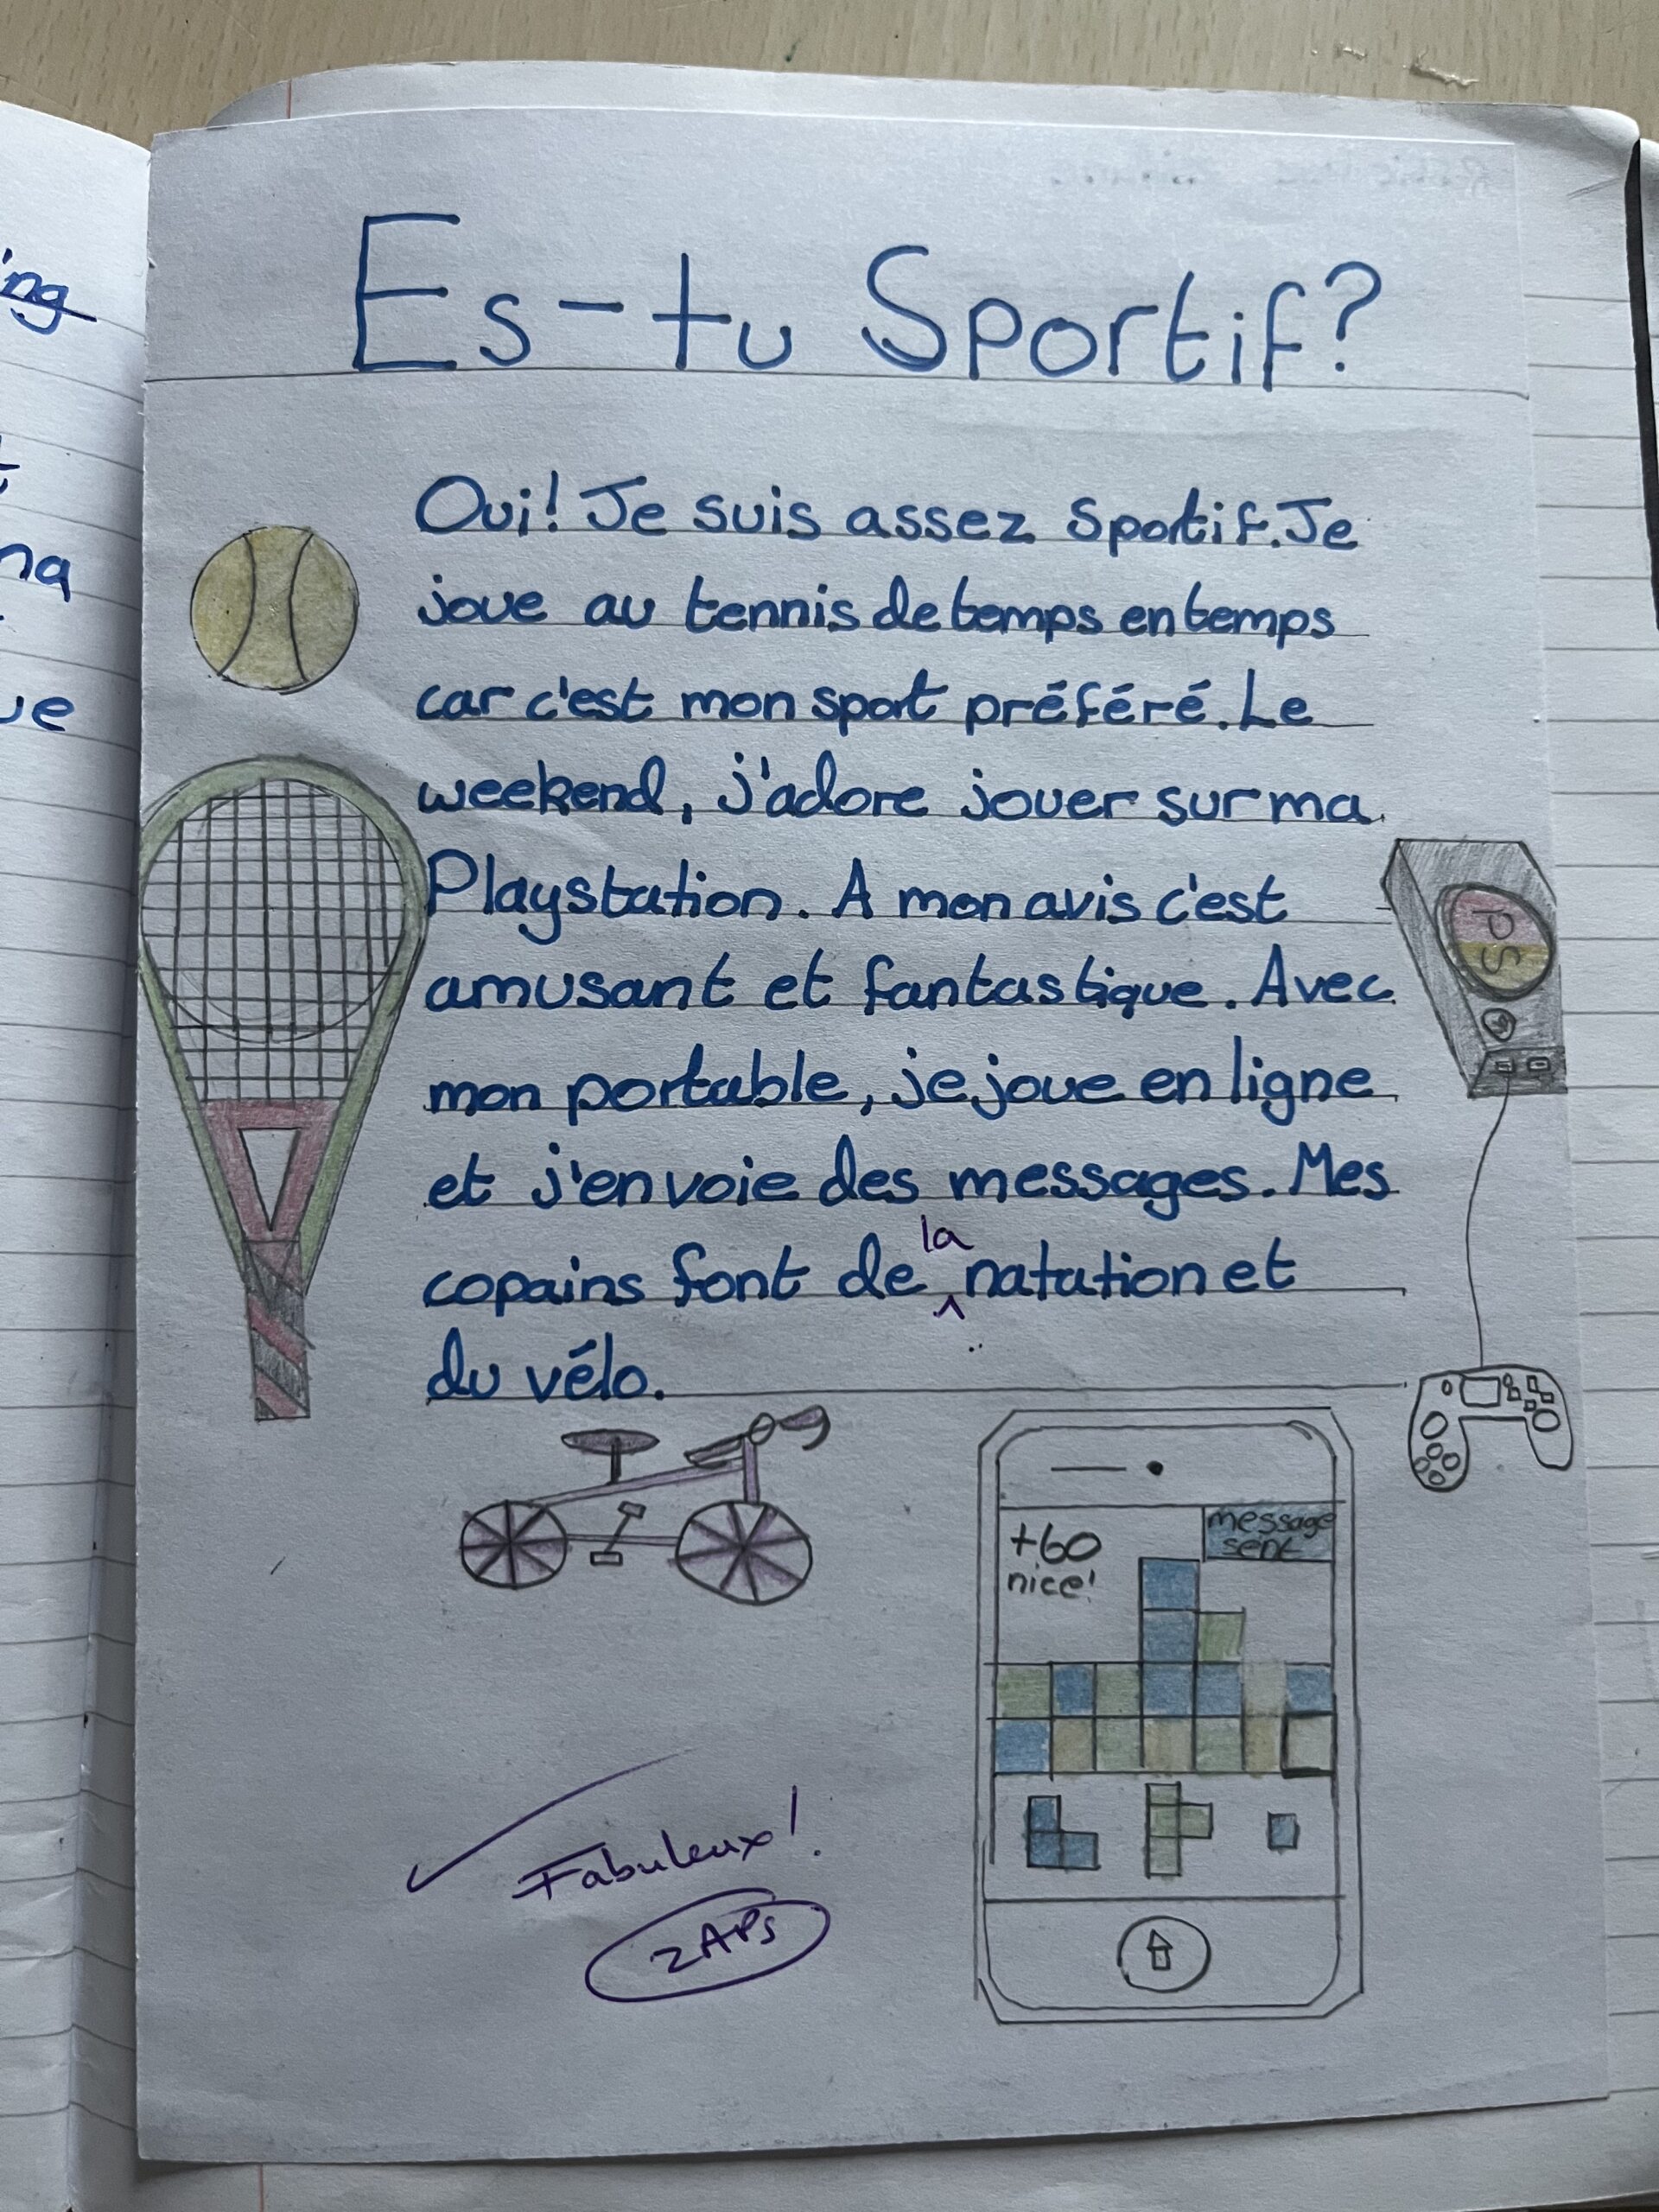 ing
na
ue
Es-tu Sportif?
Oui! Je suis assez Sportif. Je
joue au tennis de temps en temps
car c'est mon sport préféré. Le
weekend, j'adore jouer sur ma
Playstation. A mon avis c'est
amusant et fantastique. Avec
mon portable, je joue en ligne
et j'envoie des messages. Mes
copains font de la natation et
du vélo.
PS
message
sent
+60
nice!
Fabuleux!
2APs